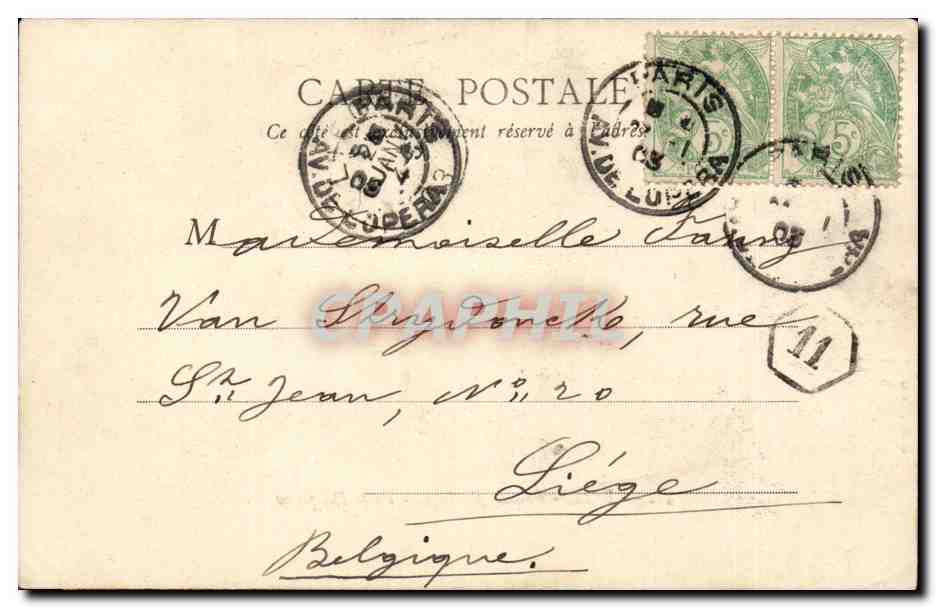 CARTE POSTALE
Ce côté est exclusivement réservé à l'adresse
PARIS
AV. DE L'OPERA
JANV
03
PARIS
AV. DE L'OPERA
03
5c
5c
03
Mademoiselle Fanny
Van Strydonck, rue
St Jean, No 20
Liége
Belgique.
11
CPAPHIL